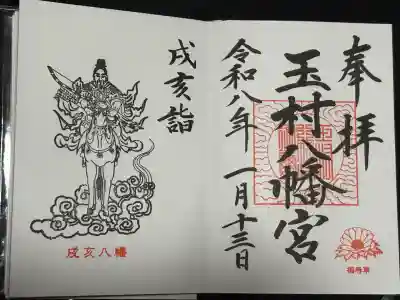 奉拝
玉村八幡宮
令和八年 一月十三日
戌亥詣
戌亥八幡
福寿草